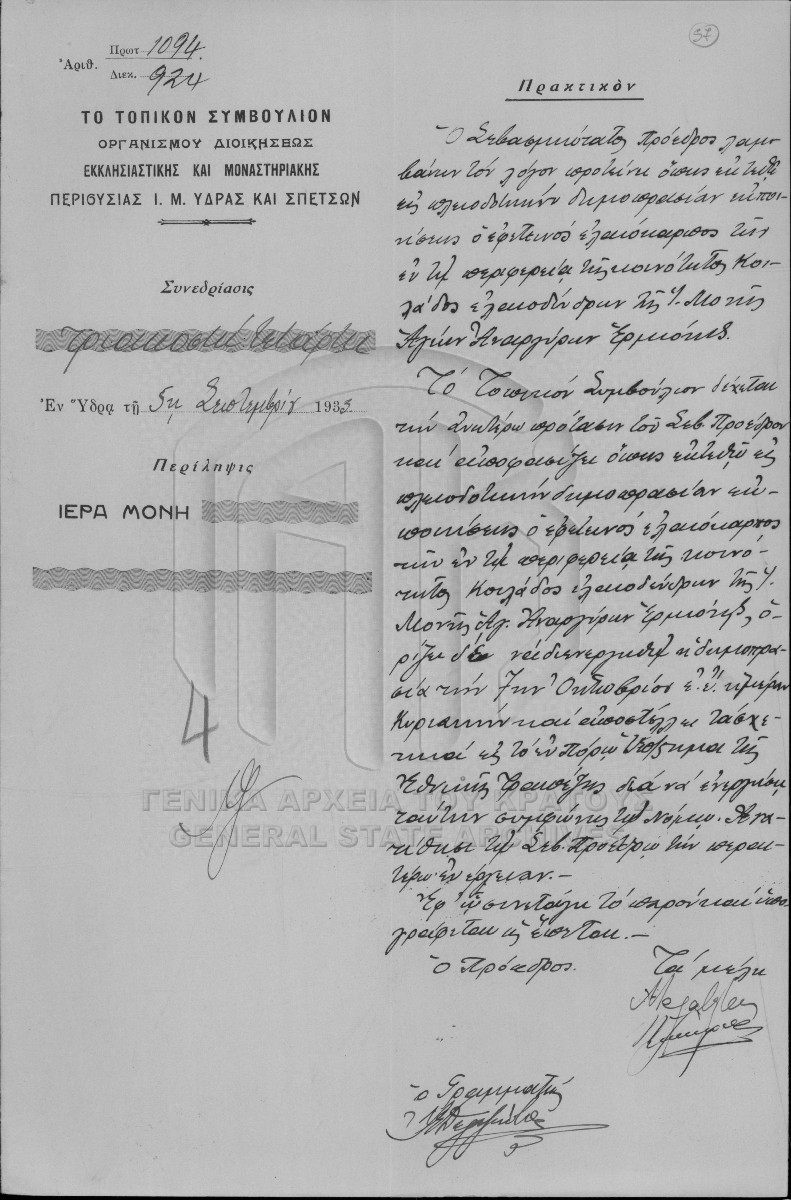 37
Ἀριθ. Πρωτ. 1094.
Διεκ. 924
ΤΟ ΤΟΠΙΚΟΝ ΣΥΜΒΟΥΛΙΟΝ
ΟΡΓΑΝΙΣΜΟΥ ΔΙΟΙΚΗΣΕΩΣ
ΕΚΚΛΗΣΙΑΣΤΙΚΗΣ ΚΑΙ ΜΟΝΑΣΤΗΡΙΑΚΗΣ
ΠΕΡΙΟΥΣΙΑΣ Ι. Μ. ΥΔΡΑΣ ΚΑΙ ΣΠΕΤΣΩΝ
Συνεδρίασις
τριακοστή τετάρτη
Ἐν Ὕδρᾳ τῇ 5ῃ Σεπτεμβρίου 1933
Περίληψις
ΙΕΡΑ ΜΟΝΗ
4
Πρακτικὸν
Ὁ Σεβασμιώτατος Πρόεδρος λαμ-
βάνων τὸν λόγον προτείνει ὅπως ἐκτεθῇ
εἰς πλειοδοτικὴν δημοπρασίαν ἐκποι-
ήσεως ὁ ἐφετεινὸς ἐλαιόκαρπος τῶν
ἐν τῇ περιφερείᾳ τῆς κοινότητος Κοι-
λάδος ἐλαιοδένδρων τῆς Ἱ. Μονῆς
Ἁγίων Ἀναργύρων Ἑρμιόνης.
Τὸ Τοπικὸν Συμβούλιον δέχεται
τὴν ἀνωτέρω πρότασιν τοῦ Σεβ. Προέδρου
καὶ ἀποφασίζει ὅπως ἐκτεθῇ εἰς
πλειοδοτικὴν δημοπρασίαν ἐκ-
ποιήσεως ὁ ἐφετεινὸς ἐλαιόκαρπος
τῶν ἐν τῇ περιφερείᾳ τῆς κοινό-
τητος Κοιλάδος ἐλαιοδένδρων τῆς Ἱ.
Μονῆς Ἁγ. Ἀναργύρων Ἑρμιόνης, ὁ-
ρίζει δὲ νὰ διενεργηθῇ ἡ δημοπρα-
σία τὴν 7ην Ὀκτωβρίου ἐ. ἔ. ἡμέραν
Κυριακὴν καὶ ἀποστέλλει τὰ σχε-
τικὰ εἰς τὸ ἐν Πόρῳ Ὑπ/τημα τῆς
Ἐθνικῆς Τραπέζης διὰ νὰ ἐνεργήσῃ
ταύτην συμφώνως τῷ Νόμῳ. Ἀνα-
τίθησι τῷ Σεβ. Προέδρῳ τὴν περαι-
τέρω ἐνέργειαν.—
Ἐφ' ᾧ συνετάγη τὸ παρὸν καὶ ὑπο-
γράφεται ὡς ἕπεται.—
Ὁ Πρόεδρος. Τὰ μέλη
ὁ Γραμματεύς
ΓΕΝΙΚΑ ΑΡΧΕΙΑ ΤΟΥ ΚΡΑΤΟΥΣ
GENERAL STATE ARCHIVES